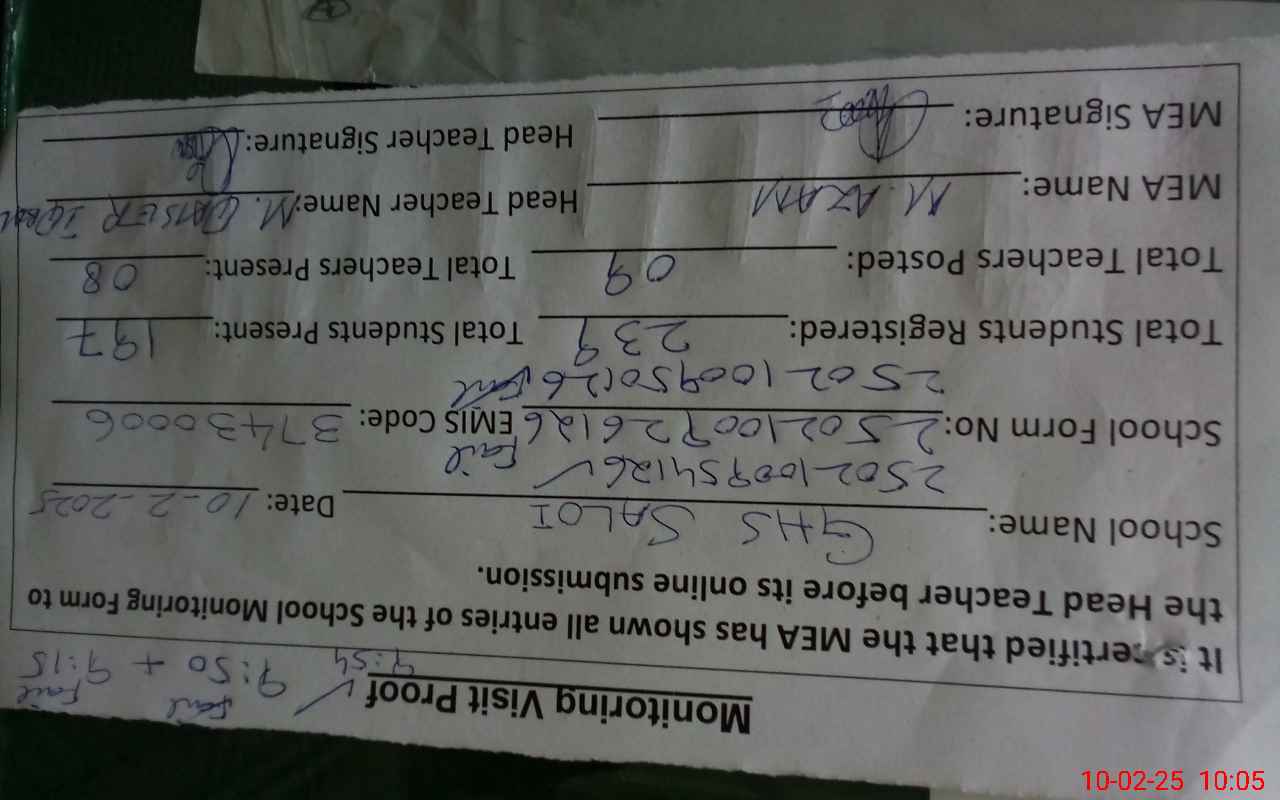 Monitoring Visit Proof ✓ 9:54 9:50 + 9:15
fail fail
It is certified that the MEA has shown all entries of the School Monitoring Form to
the Head Teacher before its online submission.
School Name: GHS SALOI Date: 10-2-2025
2502100954126 ✓ fail
School Form No: 2502100926126 EMIS Code: 37430006
2502100950126 fail
Total Students Registered: 239 Total Students Present: 197
Total Teachers Posted: 09 Total Teachers Present: 08
MEA Name: M. AZAM Head Teacher Name: M.
MEA Signature: Head Teacher Signature:
10-02-25 10:05